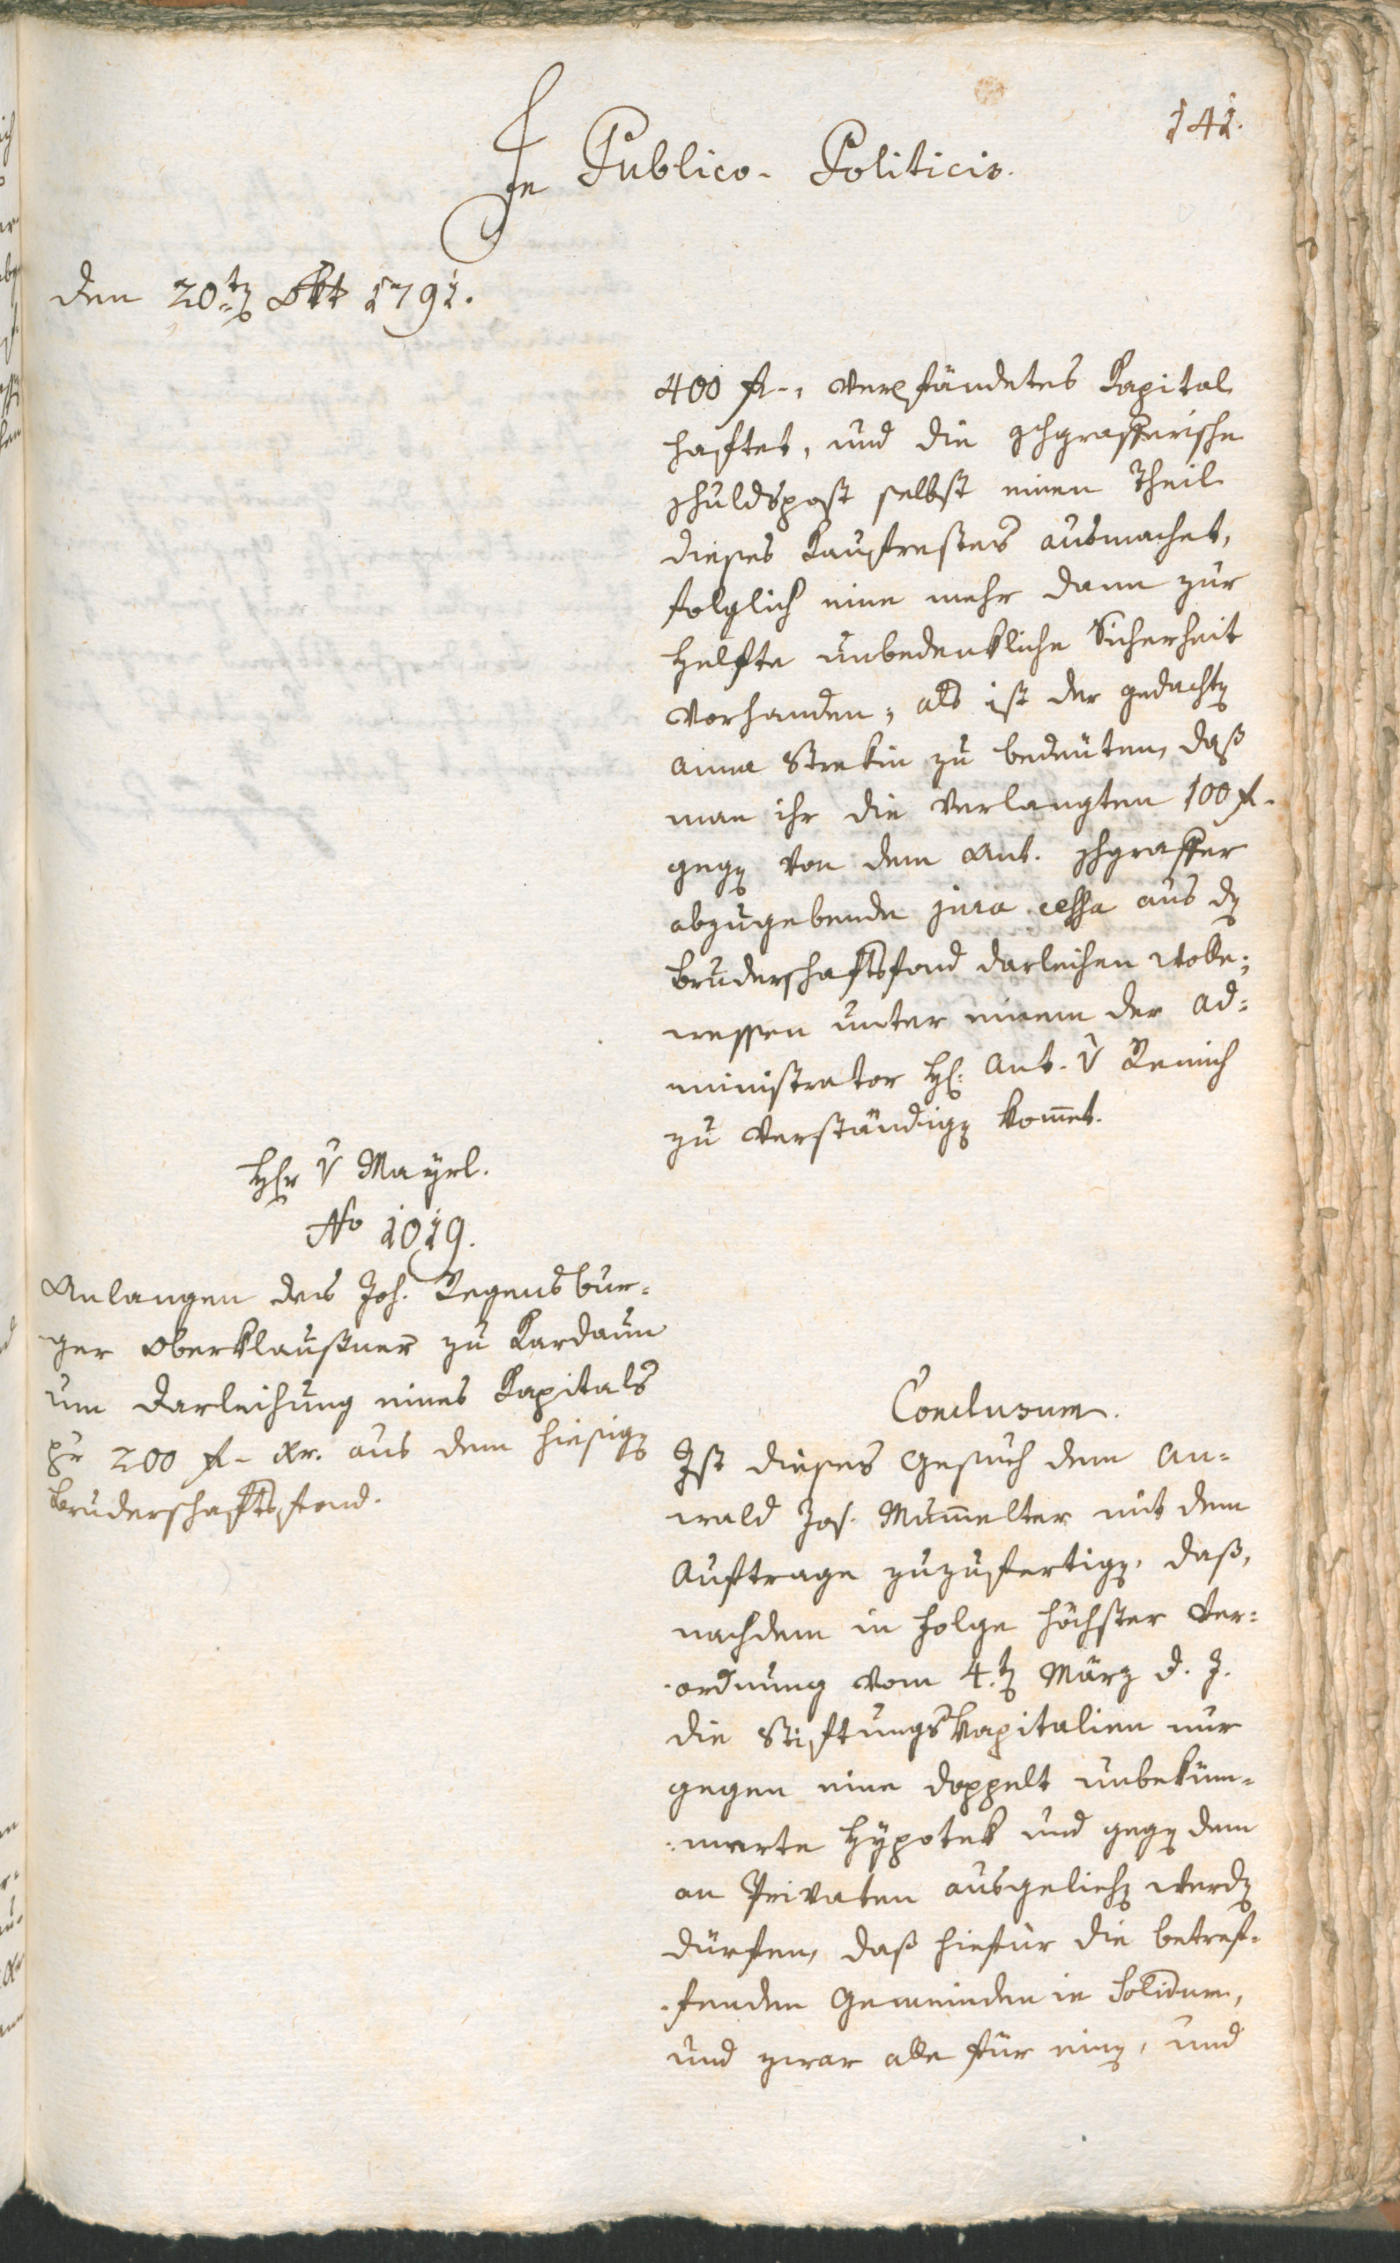 141.
In Publico-Politicis.
den 20ten Okt 1791.
400 fl-, verpfändetes Kapital
haftet, und die schgrafferische
schuldspost selbst einen Theil
dieses Kaufrestes ausmachet,
folglich eine mehr dann zur
Helfte unbedenkliche Sicherheit
vorhanden; als ist der gedachten
Anna Strekin zu bedeuten, daß
man ihr die verlangten 100 fl.
gegen von dem Ant. schgraffer
abzugebende jura cessa aus den
bruderschaftsfond darleihen wolle;
wessen unter einem der Ad-
ministrator H: Ant. v Remich
zu verständigen kommet.
Hr v Mayrl.
No 1019.
Anlangen des Joh. Regensbur-
ger Oberklaußner zu Kardaun
um Darleihung eines Kapitals
pr 200 fl- xr. aus dem hiesigen
bruderschaftsfond.
Conclusum.
Ist dieses Gesuch dem An-
wald Jos. Mummelter mit dem
Auftrage zuzufertigen, daß,
nachdem in Folge höchster Ver-
ordnung vom 4.ten März d. J.
die Stiftungskapitalien nur
gegen eine doppelt unbeküm-
merte Hypotek und gegen dem
an Privaten ausgeliehen werden
dürfen, daß hiefür die betref-
fenden Gemeinden in Solidum,
und zwar alle für einen, und